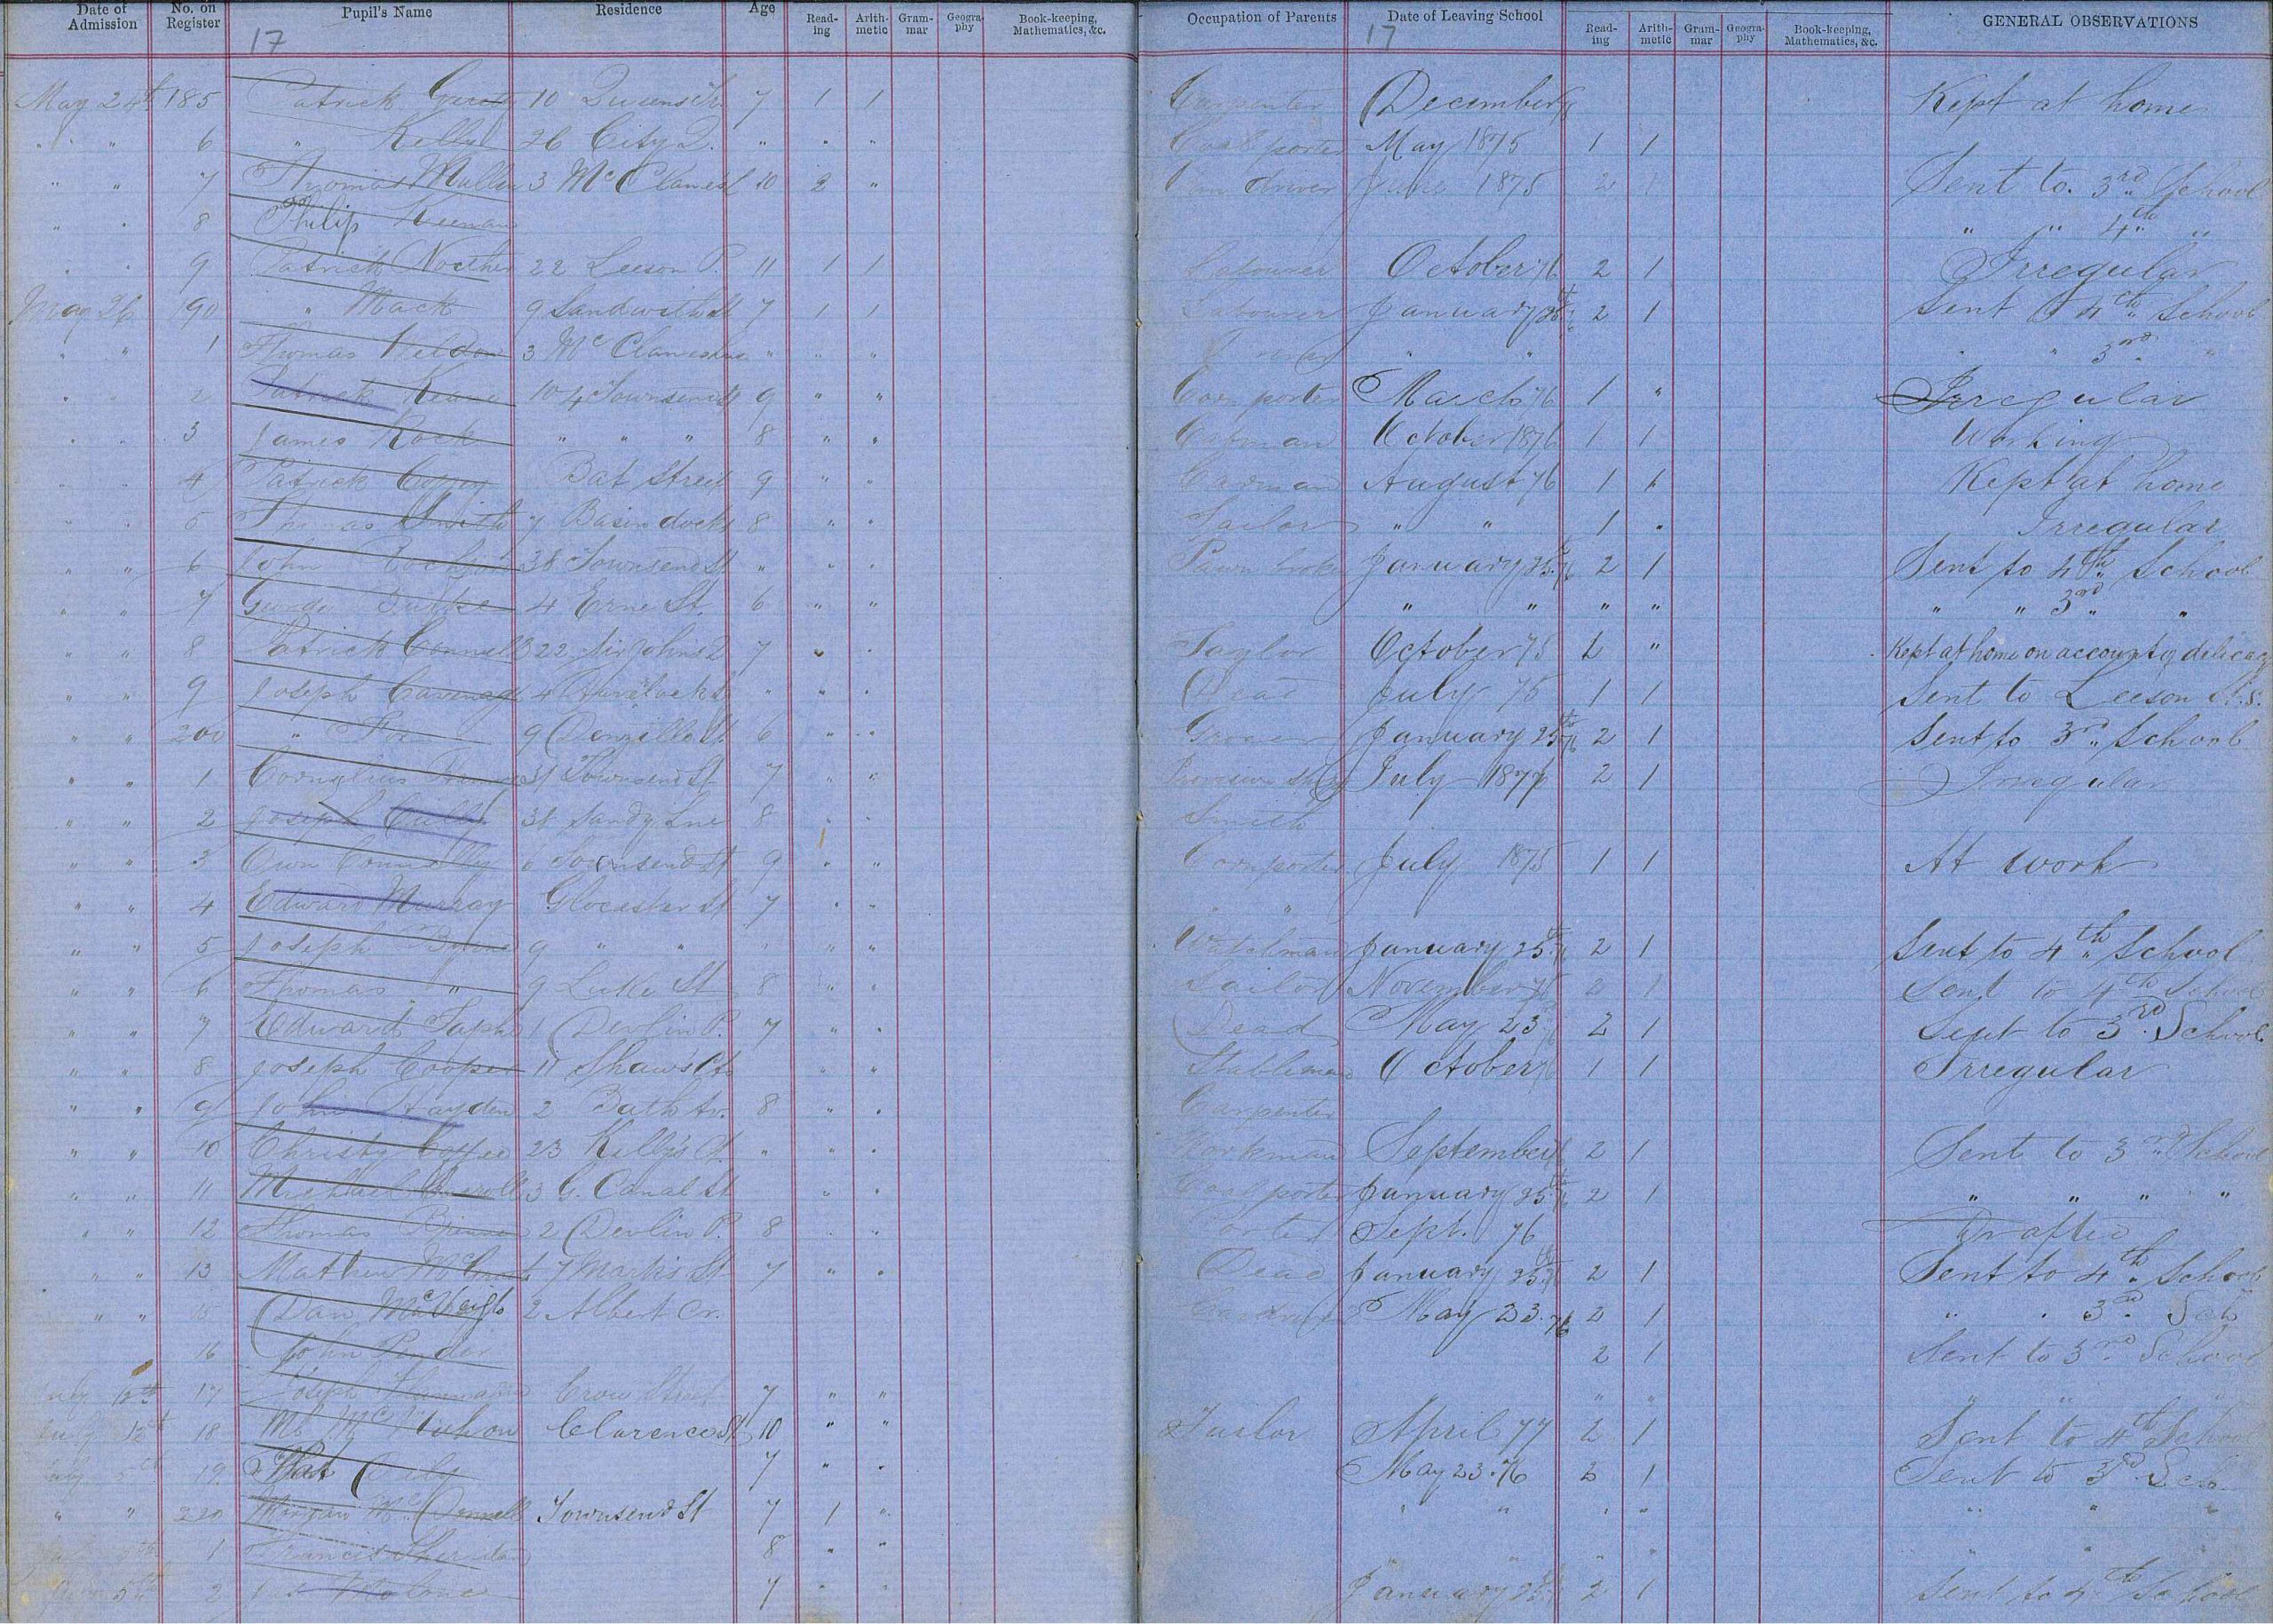 Date of Admission No. on Register Pupil's Name Residence Age Read-ing Arith-metic Gram-mar Geogra-phy Book-keeping, Mathematics, &c. Occupation of Parents Date of Leaving School Read-ing Arith-metic Gram-mar Geogra-phy Book-keeping, Mathematics, &c. GENERAL OBSERVATIONS
17 17
May 24th 185 Patrick 10 Queens 7 1 1 Carpenter December Kept at home
" " 6 " Kelly 26 City Q. " " " Coal porter May 1875 1 1
" " 7 Thomas Mullen 3 McClanes 10 2 " Van driver June 1875 2 1 Sent to 3rd School
" " 8 Philip Keenan " " 4th "
" " 9 Patrick 22 Leeson P. 11 1 1 Labourer October 76 2 1 Irregular
May 26 190 " Mack 9 Sandwith St 7 1 1 Labourer January 25th 76 2 1 Sent to 4th School
" " 1 Thomas Weldon 3 McClanes " " " " " " " 3rd "
" " 2 Patrick Keane 104 Townsend St 9 " " Corn porter March 76 1 " Irregular
" " 3 James Rock " " " 8 " " October 1876 1 1 Working
" " 4 Patrick Bat Street 9 " " Carman August 76 1 1 Kept at home
" " 5 Thomas Smith 7 Basin docks 8 " " Sailor " " 1 " Irregular
" " 6 John 38 Townsend St " " " Pawn broker January 25th 76 2 1 Sent to 4th School
" " 7 George Burke 4 Erne St. 6 " " " " " " " " 3rd "
" " 8 Patrick Connell 322 Sir John's Q 7 " " Taylor October 75 2 " Kept at home on account of delicacy
" " 9 Joseph Cavanagh 4 Havelock St " " " Dead July 76 1 1 Sent to Leeson St. S.
" " 200 " Fox 9 Denzille St 6 " " Grocer January 25th 76 2 1 Sent to 3rd School
" " 1 Cornelius 31 Townsend St 7 " " Provision shop July 1876 2 1 Irregular
" " 2 Joseph Cully 31 Sandy Lne 8 " " Smith
" " 3 Own Connolly 6 Townsend St 9 " " Corn porter July 1875 1 1 At work
" " 4 Edward Murray Glocester St 7 " " " "
" " 5 Joseph Byrne 9 " " " " " Watchman January 25th 76 2 1 Sent to 4th School
" " 6 Thomas " 9 Luke St 8 " " Sailor November 76 2 1 Sent to 4th School
" " 7 Edward 1 Devlin P. 7 " " Dead May 23 76 2 1 Sent to 3rd School
" " 8 Joseph Cooper 11 Shaw's Ct " " Stableman October 76 1 1 Irregular
" " 9 John Hayden 2 Bath Av. 8 " " Carpenter
" " 10 Christy Coffee 23 Kelly's Ct. " " " Workman September 2 1 Sent to 3rd School
" " 11 Michael Carroll 3 G. Canal St " " Coal porter January 25th 76 2 1 " " " "
" " 12 Thomas Brennan 2 Devlin P. 8 " " Porter Sept. 76 Drafted
" " 13 Mathew McGrath 7 Mark's St 7 " " Dead January 25th 76 2 1 Sent to 4th School
" " 15 Dan McVeigh 2 Albert Cr. May 23. 76 2 1 " " 3rd Sch
16 John Pender 2 1 Sent to 3rd School
July 6th 17 Joseph Crow Street 7 " " " " " " "
July 12th 18 Ml Mc Mahon Clarence St 10 " " Tailor April 77 2 1 Sent to 4th School
July 5th 19 Pat Daly 7 " " May 23. 76 2 1 Sent to 3rd Sch.
" " 220 Morgan McDonnell Townsend St 7 1 " " " " " " " "
5th 1 Francis Sheridan 8 " " " " " " " " "
June 5th 2 Jas Malone 7 " " January 25th 2 1 Sent to 4th School